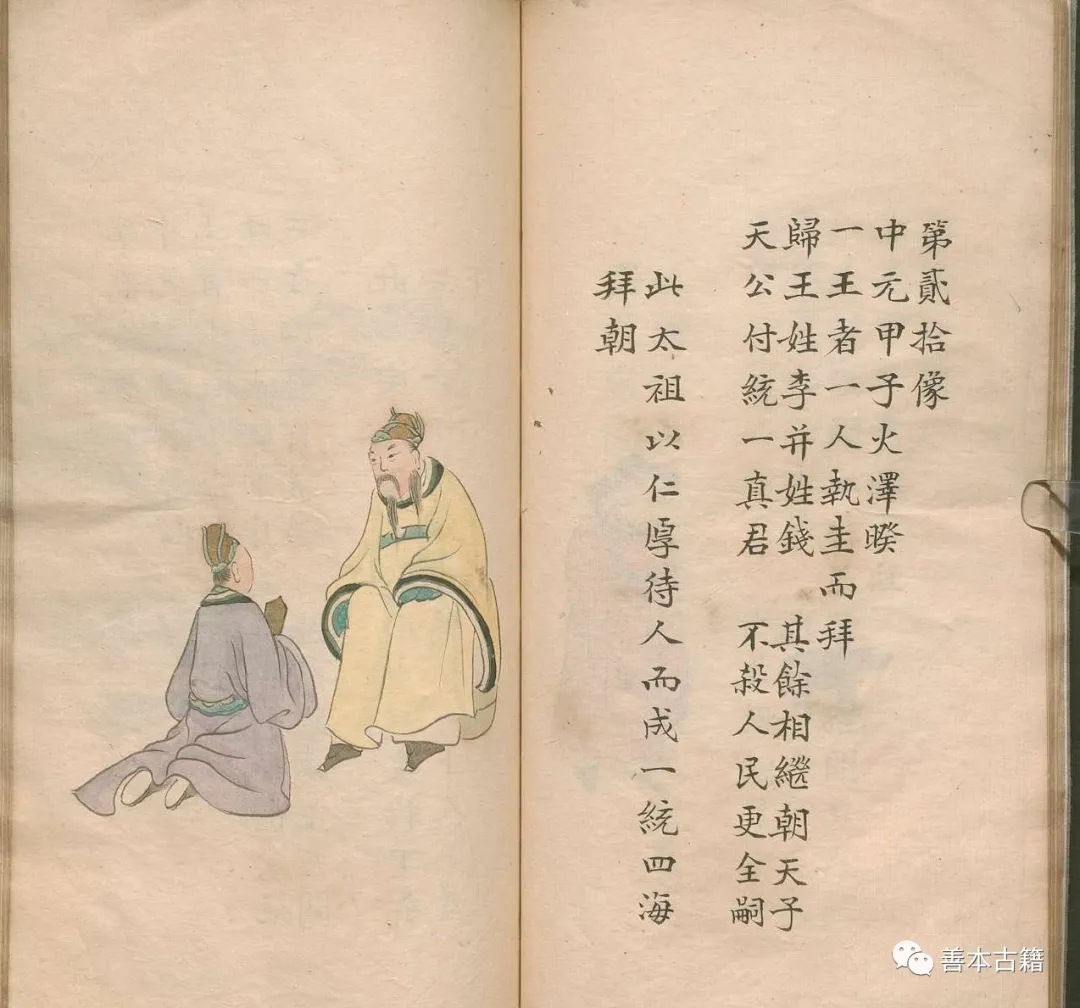 第貳拾像
中元甲子火澤暌
一王者一人執圭而拜
歸王姓李并姓錢 其餘相繼朝天子
天公付統一真君 不殺人民更全嗣
此太祖以仁厚待人而成一統四海
拜朝
善本古籍